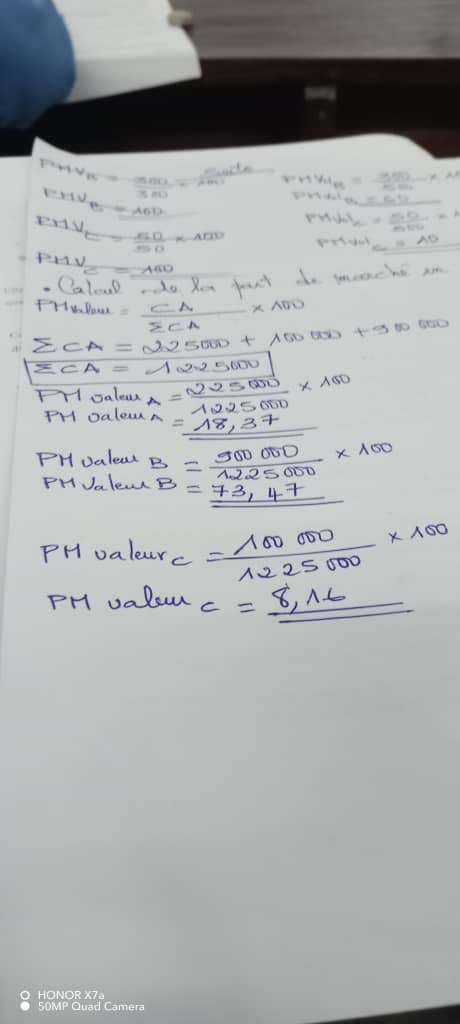 Suite
PMV_B = 300/300 × 100
PMV_B = 100
PMV_C = 50/50 × 100
PMV_C = 100
PMVol_B = 300/500 × 10
PMVol_B = 60
PMVol_C = 50/500 × 1
PMVol_C = 10
• Calcul de la part de marché en
PM valeur = CA/ΣCA × 100
ΣCA = 225000 + 100 000 + 900 000
ΣCA = 1225000
PM valeur A = 225000/1225000 × 100
PM valeur A = 18,37
PM valeur B = 900 000/1225000 × 100
PM Valeur B = 73,47
PM valeur C = 100 000/1225 000 × 100
PM valeur C = 8,16
HONOR X7a
50MP Quad Camera